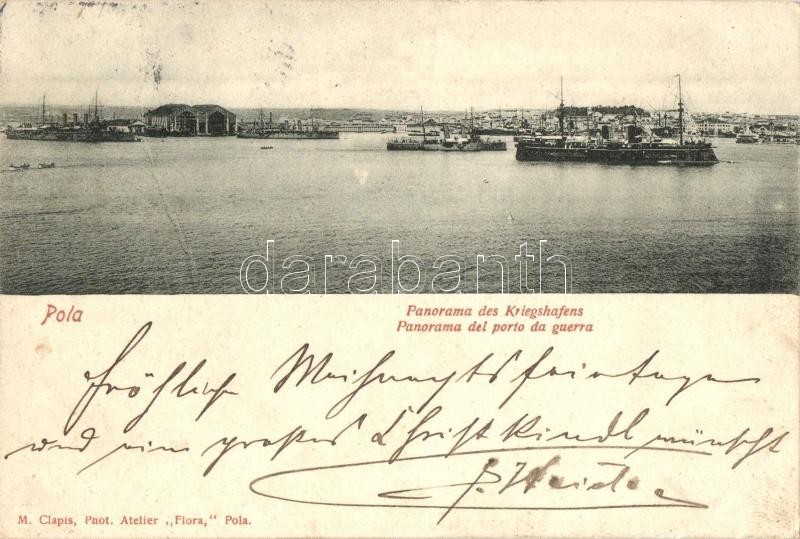 darabanth
Pola
Panorama des Kriegshafens
Panorama del porto da guerra
Fröhliche Weihnachtsfeiertage
und ein großes Christkindl wünscht
M. Clapis, Phot. Atelier „Flora,“ Pola.